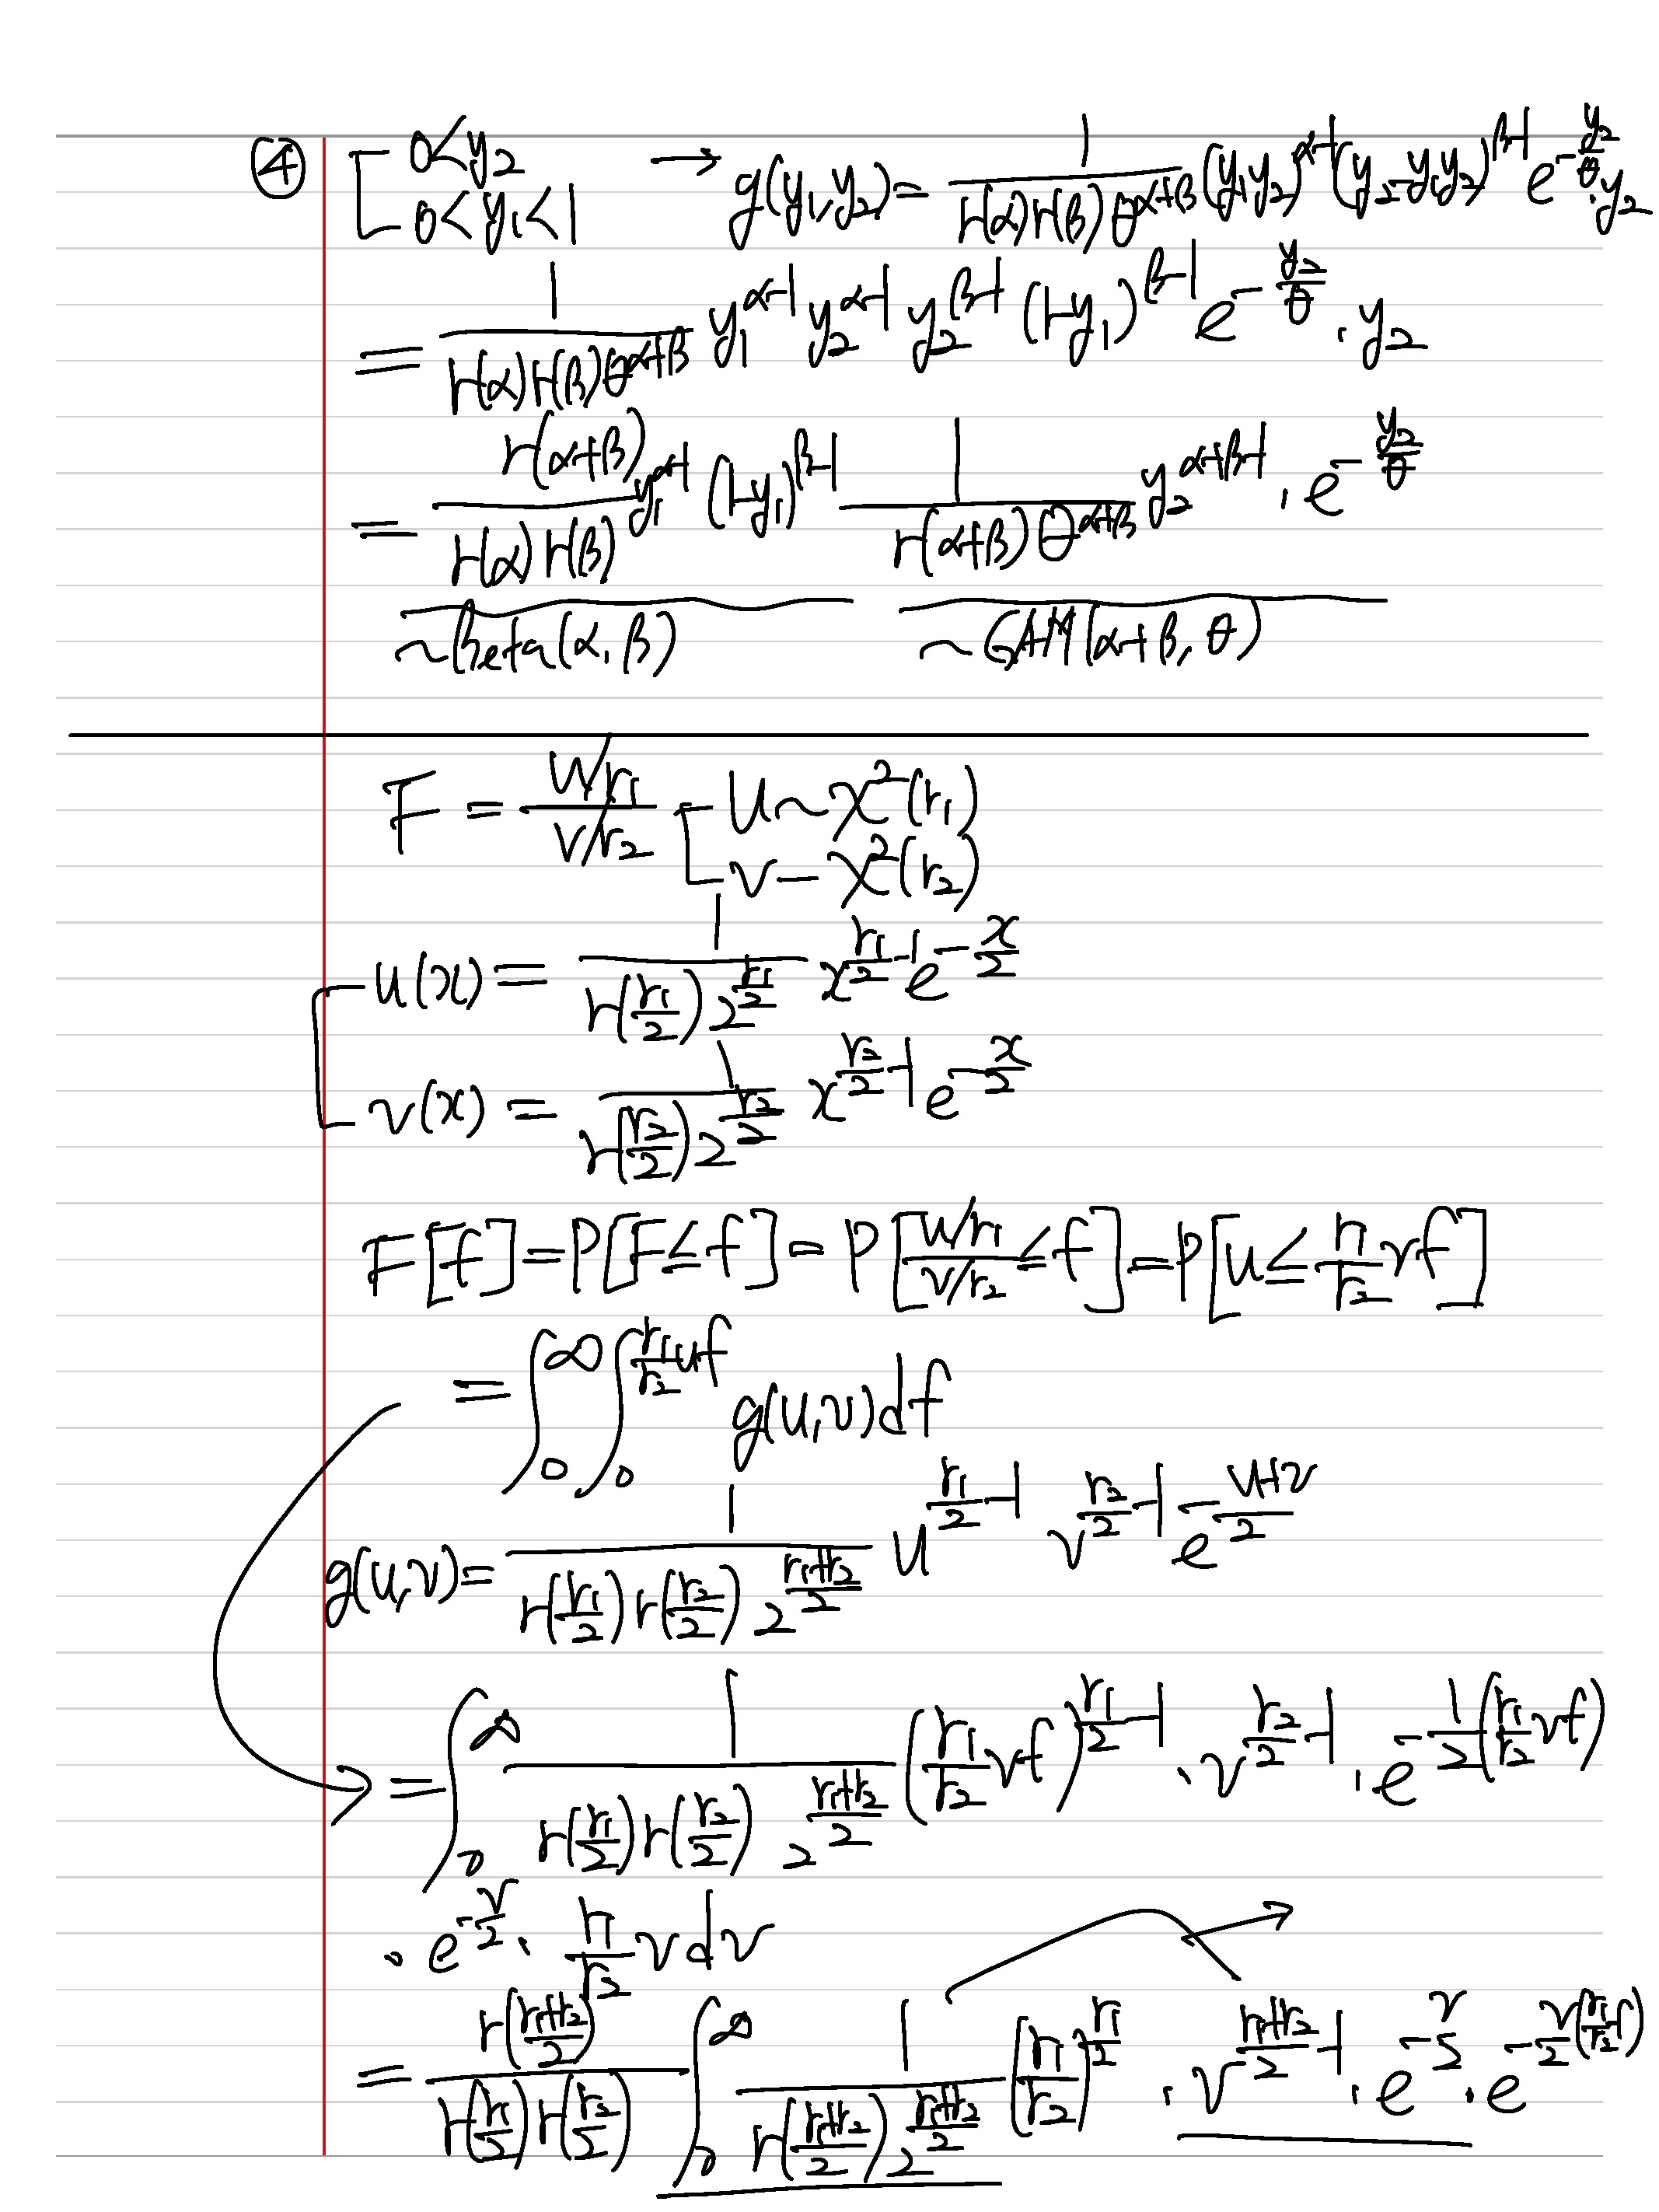 ④ 0<y₂ → g(y₁,y₂) = 1/(Γ(α)Γ(β)θ^(α+β)) (y₁y₂)^(α-1) (y₂-y₁y₂)^(β-1) e^(-y₂/θ) · y₂
0<y₁<1
= 1/(Γ(α)Γ(β)θ^(α+β)) y₁^(α-1) y₂^(α-1) y₂^(β-1) (1-y₁)^(β-1) e^(-y₂/θ) · y₂
= Γ(α+β)/(Γ(α)Γ(β)) y₁^(α-1) (1-y₁)^(β-1) 1/(Γ(α+β)θ^(α+β)) y₂^(α+β-1) · e^(-y₂/θ)
~Beta(α, β) ~GAM(α+β, θ)
F = (U/r₁)/(V/r₂) U~χ²(r₁)
V~χ²(r₂)
u(x) = 1/(Γ(r₁/2) 2^(r₁/2)) x^(r₁/2-1) e^(-x/2)
v(x) = 1/(Γ(r₂/2) 2^(r₂/2)) x^(r₂/2-1) e^(-x/2)
F[f] = P[F≤f] = P[(U/r₁)/(V/r₂) ≤ f] = P[u ≤ r₁/r₂ vf]
= ∫₀^∞ ∫₀^(r₁/r₂ uf) g(u,v)df
g(u,v) = 1/(Γ(r₁/2)Γ(r₂/2) 2^((r₁+r₂)/2)) u^(r₁/2-1) v^(r₂/2-1) e^(-(u+v)/2)
→ = ∫₀^∞ 1/(Γ(r₁/2)Γ(r₂/2) 2^((r₁+r₂)/2)) (r₁/r₂ vf)^(r₁/2-1) · v^(r₂/2-1) · e^(-1/2(r₁/r₂ vf))
· e^(-v/2) · r₁/r₂ v dv
= Γ((r₁+r₂)/2)/(Γ(r₁/2)Γ(r₂/2)) ∫₀^∞ 1/(Γ((r₁+r₂)/2) 2^((r₁+r₂)/2)) (r₁/r₂)^(r₁/2) · v^((r₁+r₂)/2-1) · e^(-v/2) · e^(-v/2(r₁/r₂ f))